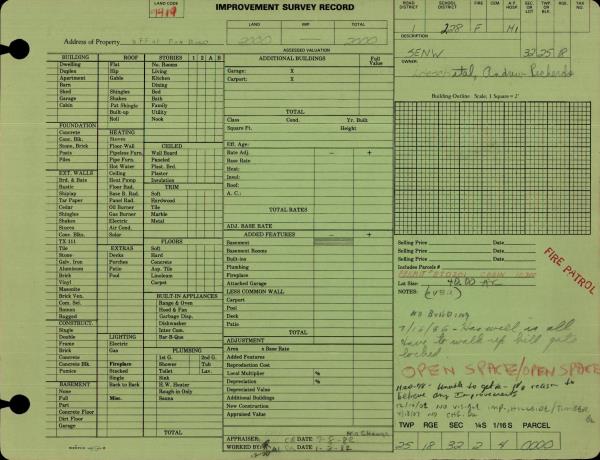 LAND CODE
1919
IMPROVEMENT SURVEY RECORD
LAND IMP. TOTAL
2000 2000
Address of Property
ASSESSED VALUATION
ROAD DISTRICT SCHOOL DISTRICT FIRE CEM A.F. HOSP SEC. OR LOT TWP. OR BLK. RGE. TAX NO.
1 228 F H1
DESCRIPTION
SENW 32 25 18
OWNER
Andrew
Building-Outline Scale, 1 Square = 2'
BUILDING ROOF STORIES 1 2 A B
Dwelling Flat No. Rooms
Duplex Hip Living
Apartment Gable Kitchen
Barn Dining
Shed Shingles Bed
Garage Shakes Bath
Cabin Pat Shingle Family
Built-up Utility
Roll Nook
FOUNDATION
Concrete HEATING
Conc. Blk. Stoves CEILED
Stone, Brick Floor-Wall Wall Board
Posts Pipeless Furn. Paneled
Piles Pipe Furn. Plast. Brd.
Hot Water Plaster
EXT. WALLS Ceiling Insulation
Brd. & Bats Heat Pump TRIM
Rustic Floor Rad. Soft
Shiplap Base B. Rad. Hardwood
Tar Paper Panel Rad. Tile
Cedar Oil Burner Marble
Shingles Gas Burner Metal
Shakes Electric
Stucco Air Cond.
Conc. Blks. Solar FLOORS
TX 111 Soft
Tile EXTRAS Hard
Stone Decks Concrete
Galv. Iron Porches Asp. Tile
Aluminum Patio Linoleum
Brick Pool Carpet
Vinyl
Masonite BUILT-IN APPLIANCES
Brick Ven. Range & Oven
Com. Sel. Hood & Fan
Roman Garbage Disp.
Rugged Dishwasher
CONSTRUCT. Inter Com.
Single Bar-B-Que
Double LIGHTING
Frame Electric PLUMBING
Brick Gas 1st G. 2nd G.
Concrete Shower Tub
Concrete Blk Fireplace Toilet Lav.
Pumice Stacked Sink
Single R.W. Heater
BASEMENT Back to Back Rough-in Only
None Misc. Sauna
Full
Part
Concrete Floor
Dirt Floor
Garage TOTAL
ADDITIONAL BUILDINGS Full Value
Garage: X
Carport: X
TOTAL
Class Cond. Yr. Built
Square Ft. Height
Eff. Age:
Rate Adj. − +
Base Rate
Heat:
Insul:
Roof:
A. C.:
TOTAL RATES
ADJ. BASE RATE
ADDED FEATURES − +
Basement
Basement Rooms
Built-ins
Plumbing
Fireplace
Attached Garage
LESS COMMON WALL
Carport
Pool
Deck
Patio
TOTAL
ADJUSTMENT
Area x Base Rate
Added Features
Reproduction Cost
Local Multiplier %
Depreciation %
Depreciated Value
Additional Buildings
New Construction
Appraised Value
TOTAL
No Change
APPRAISER:
WORKED BY:
Selling Price Date
Selling Price Date
Selling Price Date
Includes Parcels #
Lot Size: 40.00 AC
NOTES:
FIRE PATROL
No Building
locked
OPEN SPACE/OPEN SPACE
believe any Improvements
TWP RGE SEC ¼ S 1/16 S PARCEL
25 18 32 2 4 0000